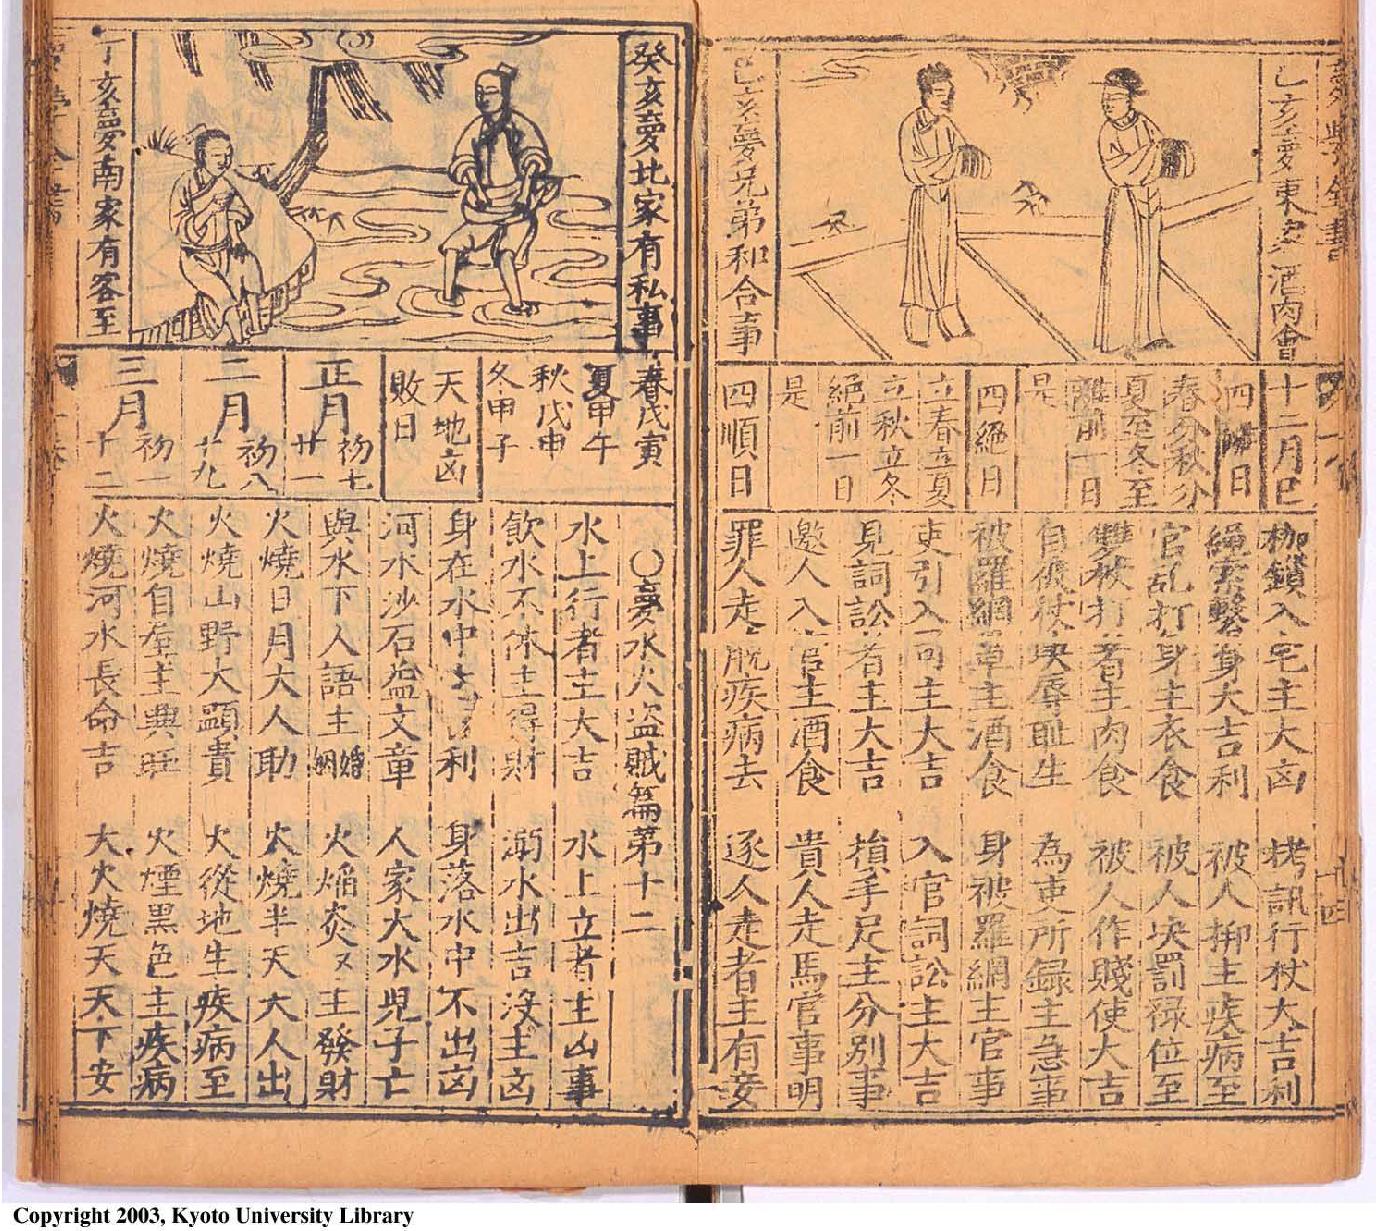 乙亥夢東家酒肉會
己亥夢兄弟和合事
十二月巳
四離日
春分秋分
夏至冬至
離前一日
是
四絕日
立春立夏
立秋立冬
絕前一日
是
四順日
枷鎖入宅主大凶 栲訊行杖大吉利
繩索繫身大吉利 被人抑主疾病至
官乱打身主衣食 被人决罰禄位至
雙被打著主肉食 被人作賤使大吉
自伏杖决辱耻生 為吏所録主急事
被羅網罩主酒食 身被羅網主官事
吏引入司主大吉 入官詞訟主大吉
見詞訟者主大吉 損手足主分別事
邀人入官主酒食 貴人走馬官事明
罪人走脱疾病去 逐人走者主有妄
癸亥夢北家有私事
丁亥夢南家有客至
春戊寅
夏甲午
秋戊申
冬甲子
天地凶
敗日
正月 初七 廿一
二月 初八 廿九
三月 初一 十二
○夢水火盜賊篇第十二
水上行者主大吉 水上立者主凶事
飲水不休主得財 溺水出吉沒主凶
身在水中吉利 身落水中不出凶
河水沙石益文章 人家大水兒子亡
與水下人語主婚姻 火焰炎炎主發財
火燒日月大人助 火燒半天大人出
火燒山野大顯貴 火從地生疾病至
火燒自屋主興旺 火煙黑色主疾病
火燒河水長命吉 大火燒天天下安
Copyright 2003, Kyoto University Library